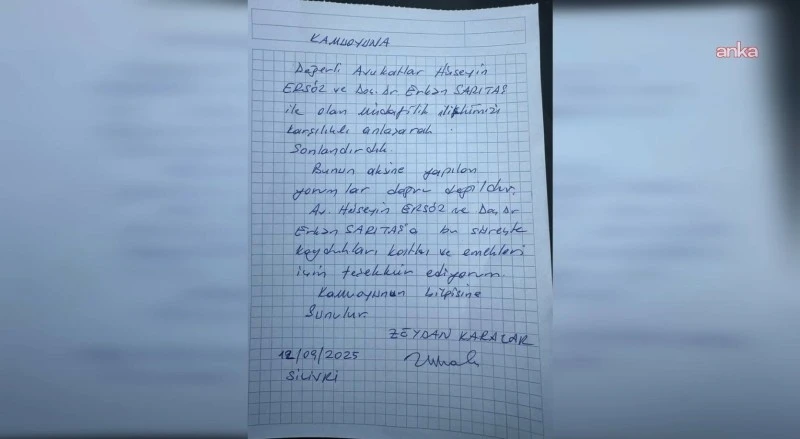 anka
KAMUOYUNA
Değerli Avukatlar Hüseyin
ERSÖZ ve Doç. Dr Erkan SARITAŞ
ile olan müdafilik ilişkimizi
karşılıklı anlaşarak
Sonlandırdık.
Bunun aksine yapılan
yorumlar doğru değildir.
Av. Hüseyin ERSÖZ ve Doç Dr
Erkan SARITAŞ'a bu süreçte
koydukları katkı ve emekleri
için teşekkür ediyorum.
Kamuoyunun bilgisine
Sunulur
ZEYDAN KARALAR
12/09/2025
SİLİVRİ